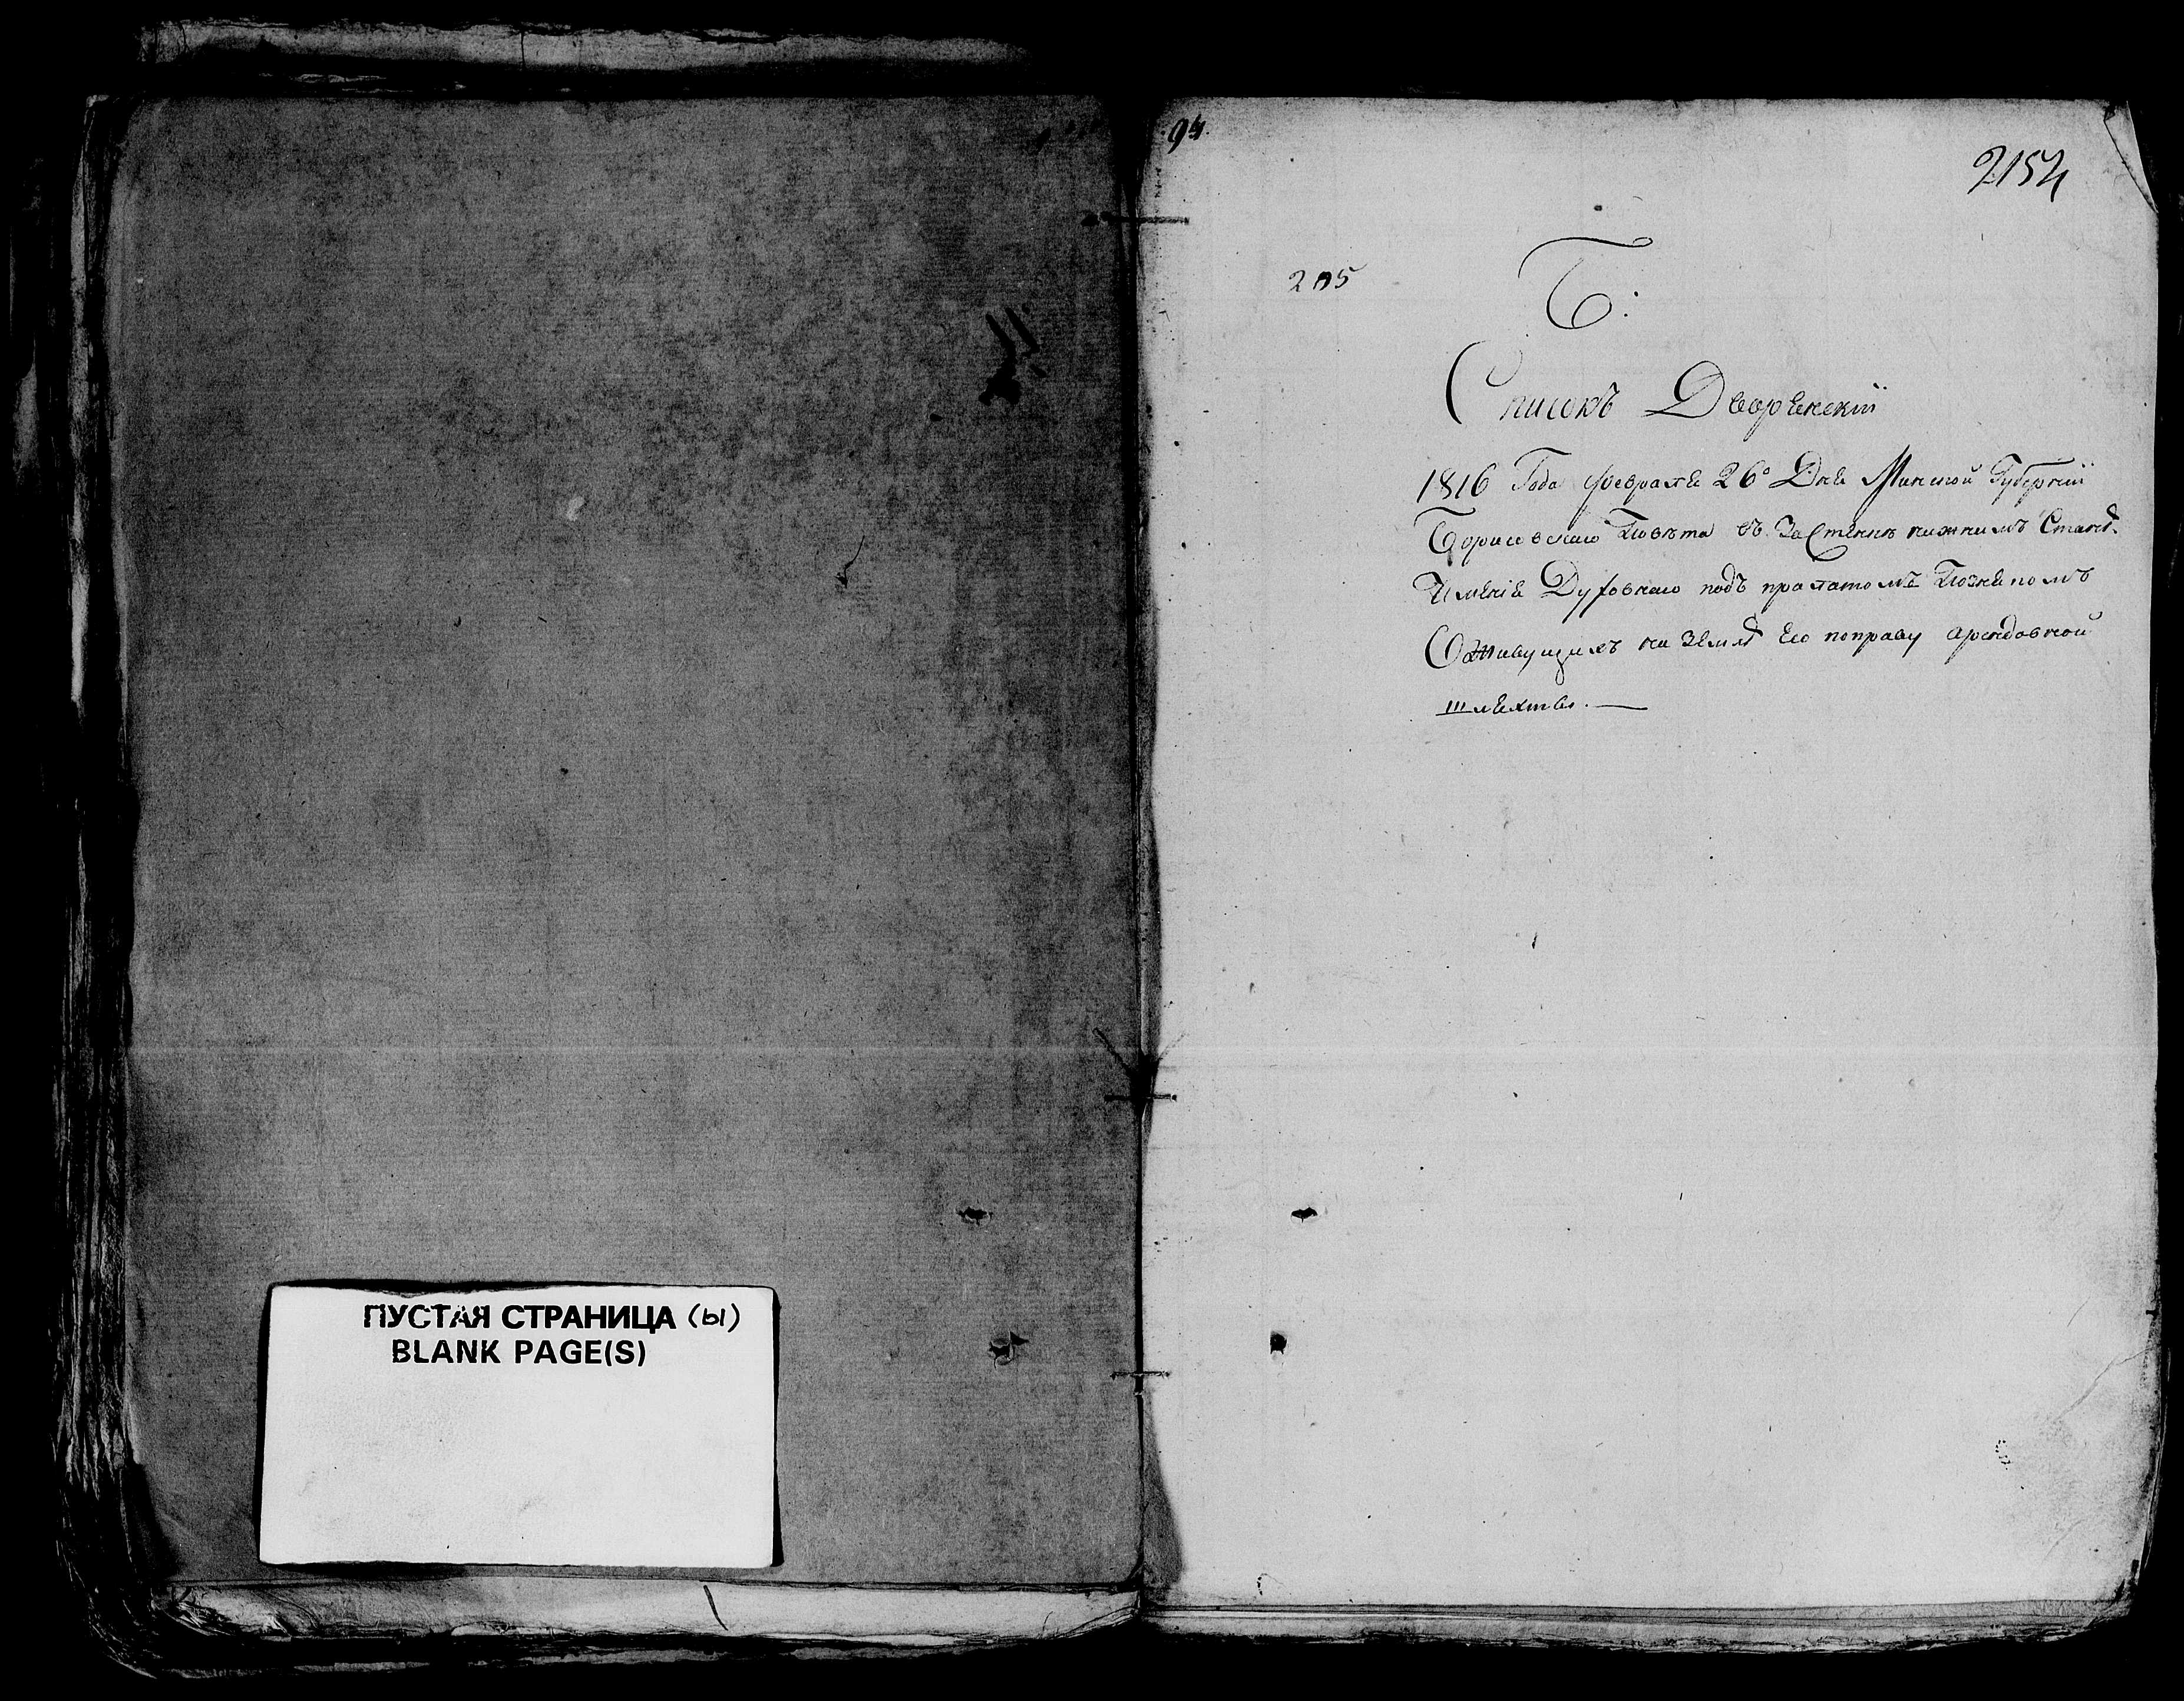 ПУСТАЯ СТРАНИЦА (ы)
BLANK PAGE(S)
94.
2154
205
Б:
Списокъ Дворенскій
1816 Года февраля 26º Дня Минской Губерніи
Борисовскаго Повѣта въ Застенкѣ нижнимъ Станѣ
Именіе Духовнаго подъ пралатомъ
живущихъ на Землѣ Его поправу арендовной
шлехты. —